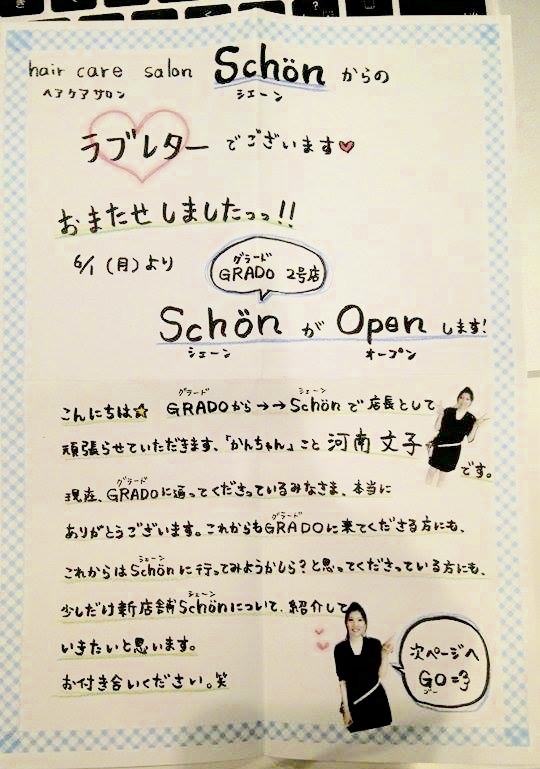 hair care salon Schönからの
ヘアケアサロン シェーン
ラブレターでございます♥
おまたせしましたっっ!!
6/1(月)より
グラード
GRADO 2号店
SchönがOpenします!
シェーン オープン
グラード シェーン
こんにちは☆ GRADOから→→Schönで店長として
頑張らせていただきます、「かんちゃん」こと河南文子
です。
グラード
現在、GRADOに通ってくださっているみなさま、本当に
グラード
ありがとうございます。これからもGRADOに来てくださる方にも、
シェーン
これからはSchönに行ってみようかしら?と思ってくださっている方にも、
シェーン
少しだけ新店舗Schönについて、紹介して
いきたいと思います。
お付き合いください。笑
次ページへ
GO=3
ゴー